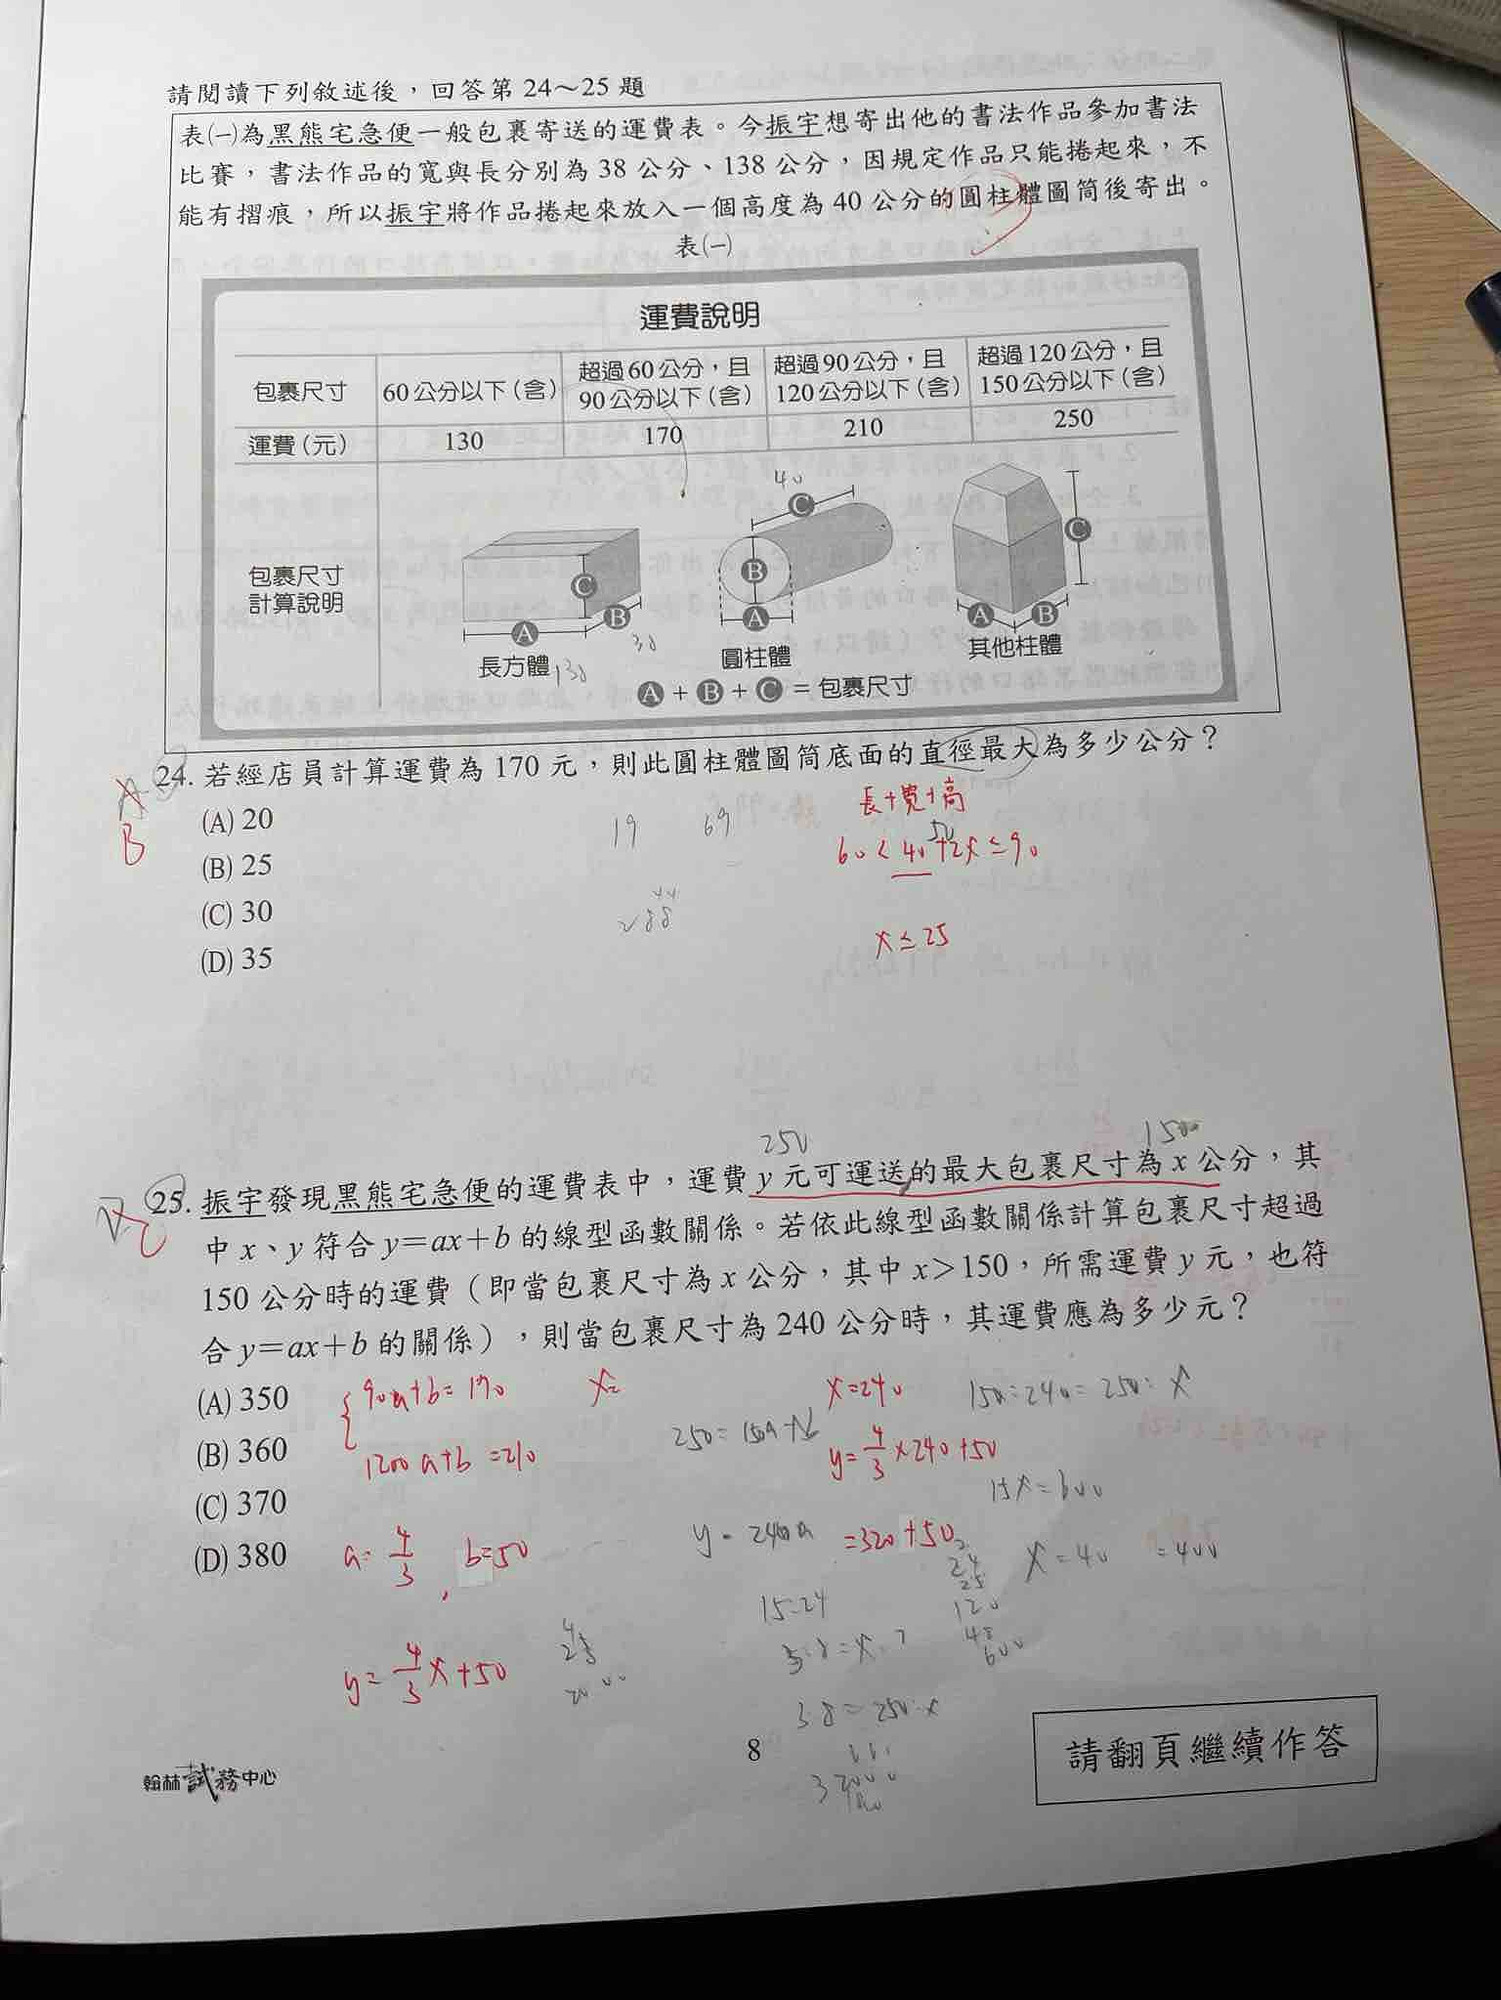 請閱讀下列敘述後，回答第24～25題
表㈠為黑熊宅急便一般包裹寄送的運費表。今振宇想寄出他的書法作品參加書法
比賽，書法作品的寬與長分別為38公分、138公分，因規定作品只能捲起來，不
能有摺痕，所以振宇將作品捲起來放入一個高度為40公分的圓柱體圖筒後寄出。
表㈠
運費說明
包裹尺寸 60公分以下(含) 超過60公分，且90公分以下(含) 超過90公分，且120公分以下(含) 超過120公分，且150公分以下(含)
運費(元) 130 170 210 250
包裹尺寸
計算說明
40
C B A
C B A
C A B
長方體 圓柱體 其他柱體
A + B + C = 包裹尺寸
24. 若經店員計算運費為170元，則此圓柱體圖筒底面的直徑最大為多少公分？
B
(A) 20
(B) 25
(C) 30
(D) 35
19 69
長+寬+高
x≤25
250
25. 振宇發現黑熊宅急便的運費表中，運費y元可運送的最大包裹尺寸為x公分，其
中x、y符合y=ax+b的線型函數關係。若依此線型函數關係計算包裹尺寸超過
150公分時的運費（即當包裹尺寸為x公分，其中x>150，所需運費y元，也符
合y=ax+b的關係），則當包裹尺寸為240公分時，其運費應為多少元？
(A) 350
(B) 360
(C) 370
(D) 380
90a+b=170
x=240
y=4/3×240+50
=320+50
a=4/3, b=50
y=4/3x+50
15x=600
x=40 =400
8
翰林試務中心
請翻頁繼續作答